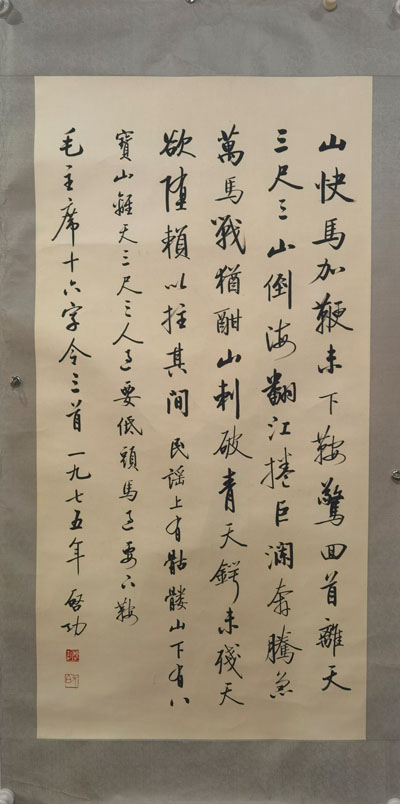 山快馬加鞭未下鞍驚回首離天
三尺三山倒海翻江捲巨瀾奔騰急
萬馬戰猶酣山刺破青天鍔未殘天
欲墮賴以拄其間民謡上有骷髏山下有八
寶山離天三尺三人過要低頭馬過要下鞍
毛主席十六字令三首一九七五年啓功